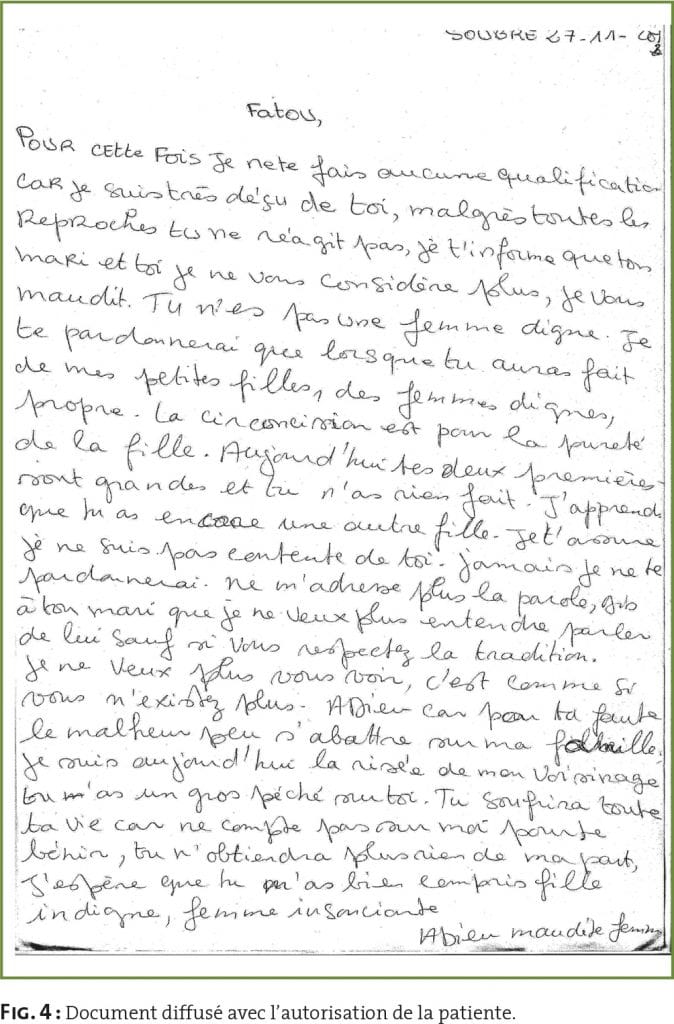 SOUBRE 27-11-
Fatou,
POUR CETTE FOIS Je ne te fais aucune qualification
CAR Je suis très déçu de toi, malgrès toutes les
REPROCHES tu ne réagit pas, je t'informe que ton
mari et toi je ne vous considère plus, je vous
maudit. Tu n'es pas une femme digne. Je
te pardonnerai que lorsque tu auras fait
de mes petites filles, des femmes dignes,
propre. La circoncission est pour la pureté
de la fille. Aujourd'hui tes deux premières
sont grandes et tu n'as rien fait. J'apprends
que tu as encore une autre fille. Je t'assure
je ne suis pas contente de toi. Jamais je ne te
pardonnerai. Ne m'adresse plus la parole, dis
à ton mari que je ne veux plus entendre parler
de lui sauf si vous respectez la tradition.
Je ne veux plus vous voir, c'est comme si
vous n'existez plus. ADieu car pour ta faute
le malheur peu s'abattre sur ma famille.
Je suis aujourd'hui la risée de mon voisinage
tu as un gros péché sur toi. Tu soufrira toute
ta vie car ne compte pas sur moi pour te
bénir, tu n'obtiendra plus rien de ma part,
J'espère que tu m'as bien compris fille
indigne, femme insonciante
ADieu maudite femme
FIG. 4 : Document diffusé avec l'autorisation de la patiente.